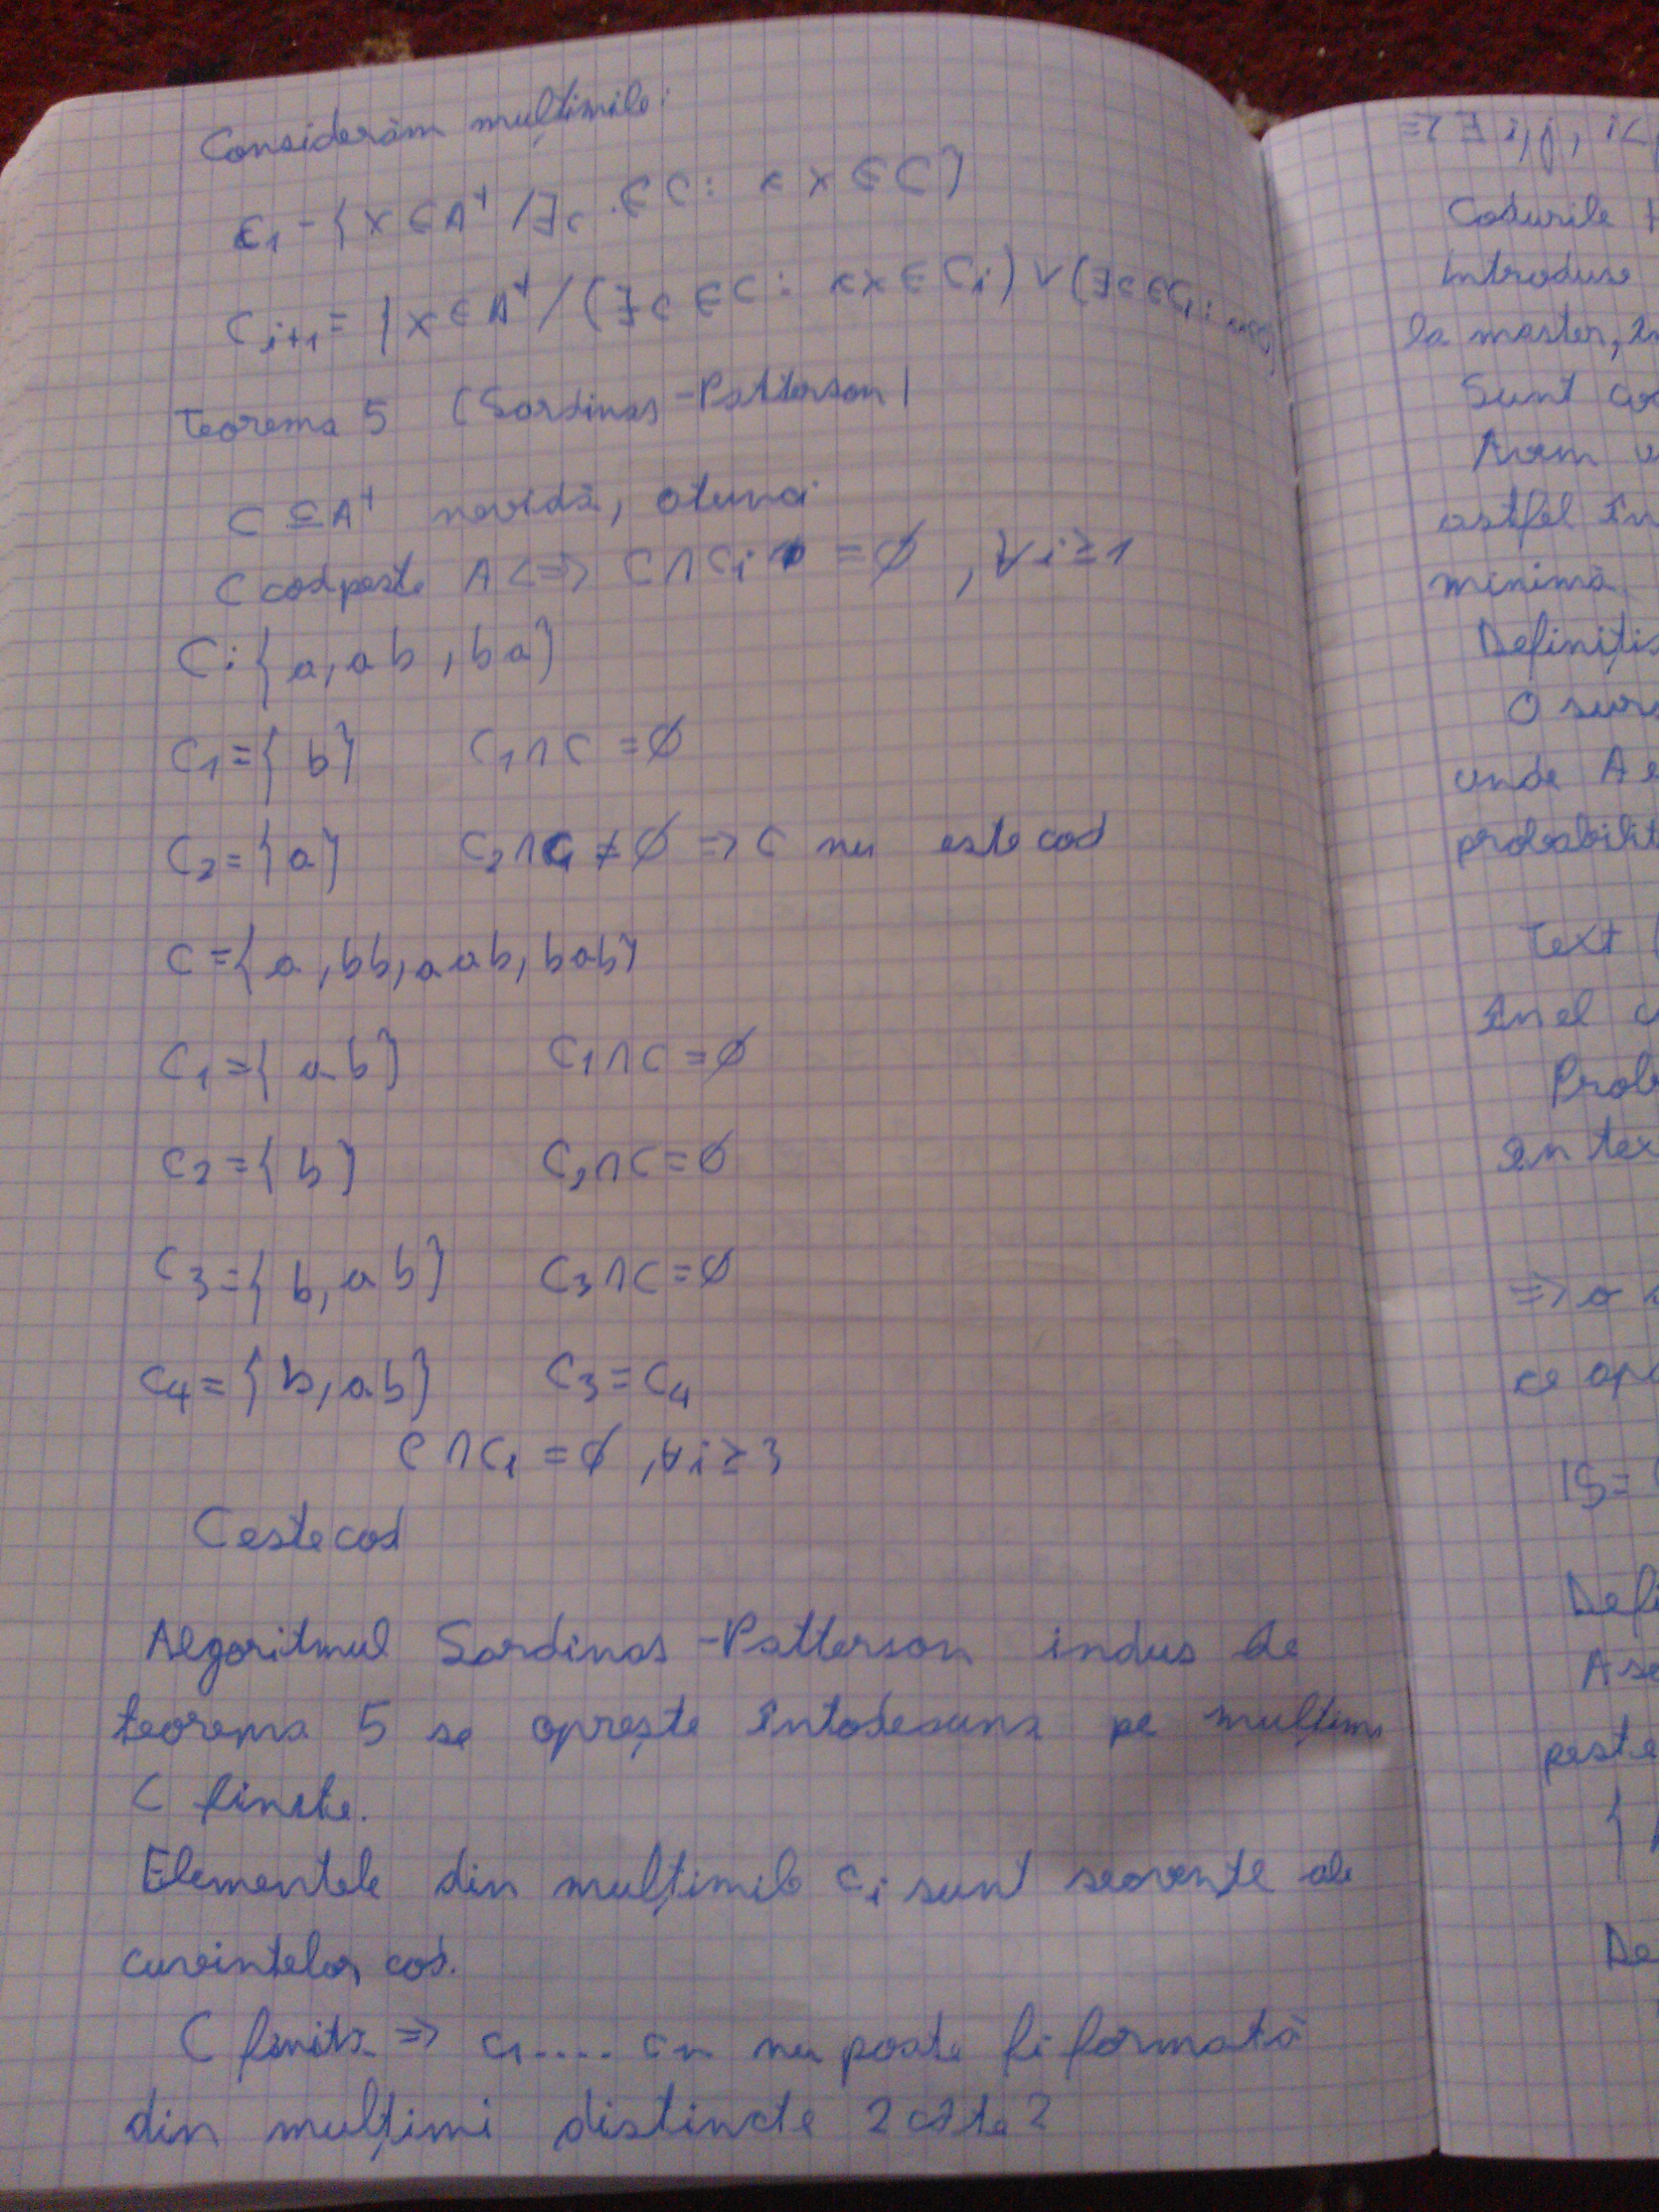 Considerăm mulțimile:
C₁ = {x ∈ A⁺ / ∃c ∈ C : cx ∈ C}
C_{i+1} = {x ∈ A⁺ / (∃c ∈ C : cx ∈ C_i) ∨ (∃c ∈ C_i :
Teorema 5 (Sardinas-Patterson)
C ⊆ A⁺ nevidă, atunci
C cod peste A <=> C ∩ C_i = ∅, ∀ i ≥ 1
C: {a, ab, ba}
C₁ = {b} C₁ ∩ C = ∅
C₂ = {a} C₂ ∩ C ≠ ∅ => C nu este cod
C = {a, bb, aab, bab}
C₁ = {ab} C₁ ∩ C = ∅
C₂ = {b} C₂ ∩ C = ∅
C₃ = {b, ab} C₃ ∩ C = ∅
C₄ = {b, ab} C₃ = C₄
C ∩ C_i = ∅, ∀ i ≥ 3
C este cod
Algoritmul Sardinas-Patterson indus de
teorema 5 se oprește întodeauna pe mulțimi
C finite.
Elementele din mulțimile C_i sunt secvente ale
cuvintelor cod.
C finită => C₁.... C_n nu poate fi formată
din mulțimi distincte 2 câte 2
=> ∃ i,j, i<
Codurile
Introduse
la master,
Sunt
Avem
astfel
minimă
O
unde A
probabilit
Text
În el
în
=>
ce
IS =
peste